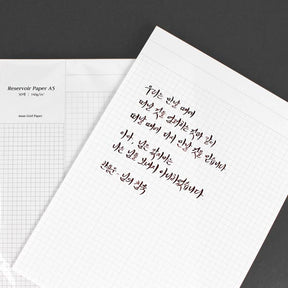 Reservoir Paper A5
Grid Paper
우리는 만날 때에
떠날 것을 염려하는 것과 같이
떠날 때에 다시 만날 것을 믿습니다.
아아, 님은 갔지마는
나는 님을 보내지 아니하였습니다.
한용운 - 님의 침묵